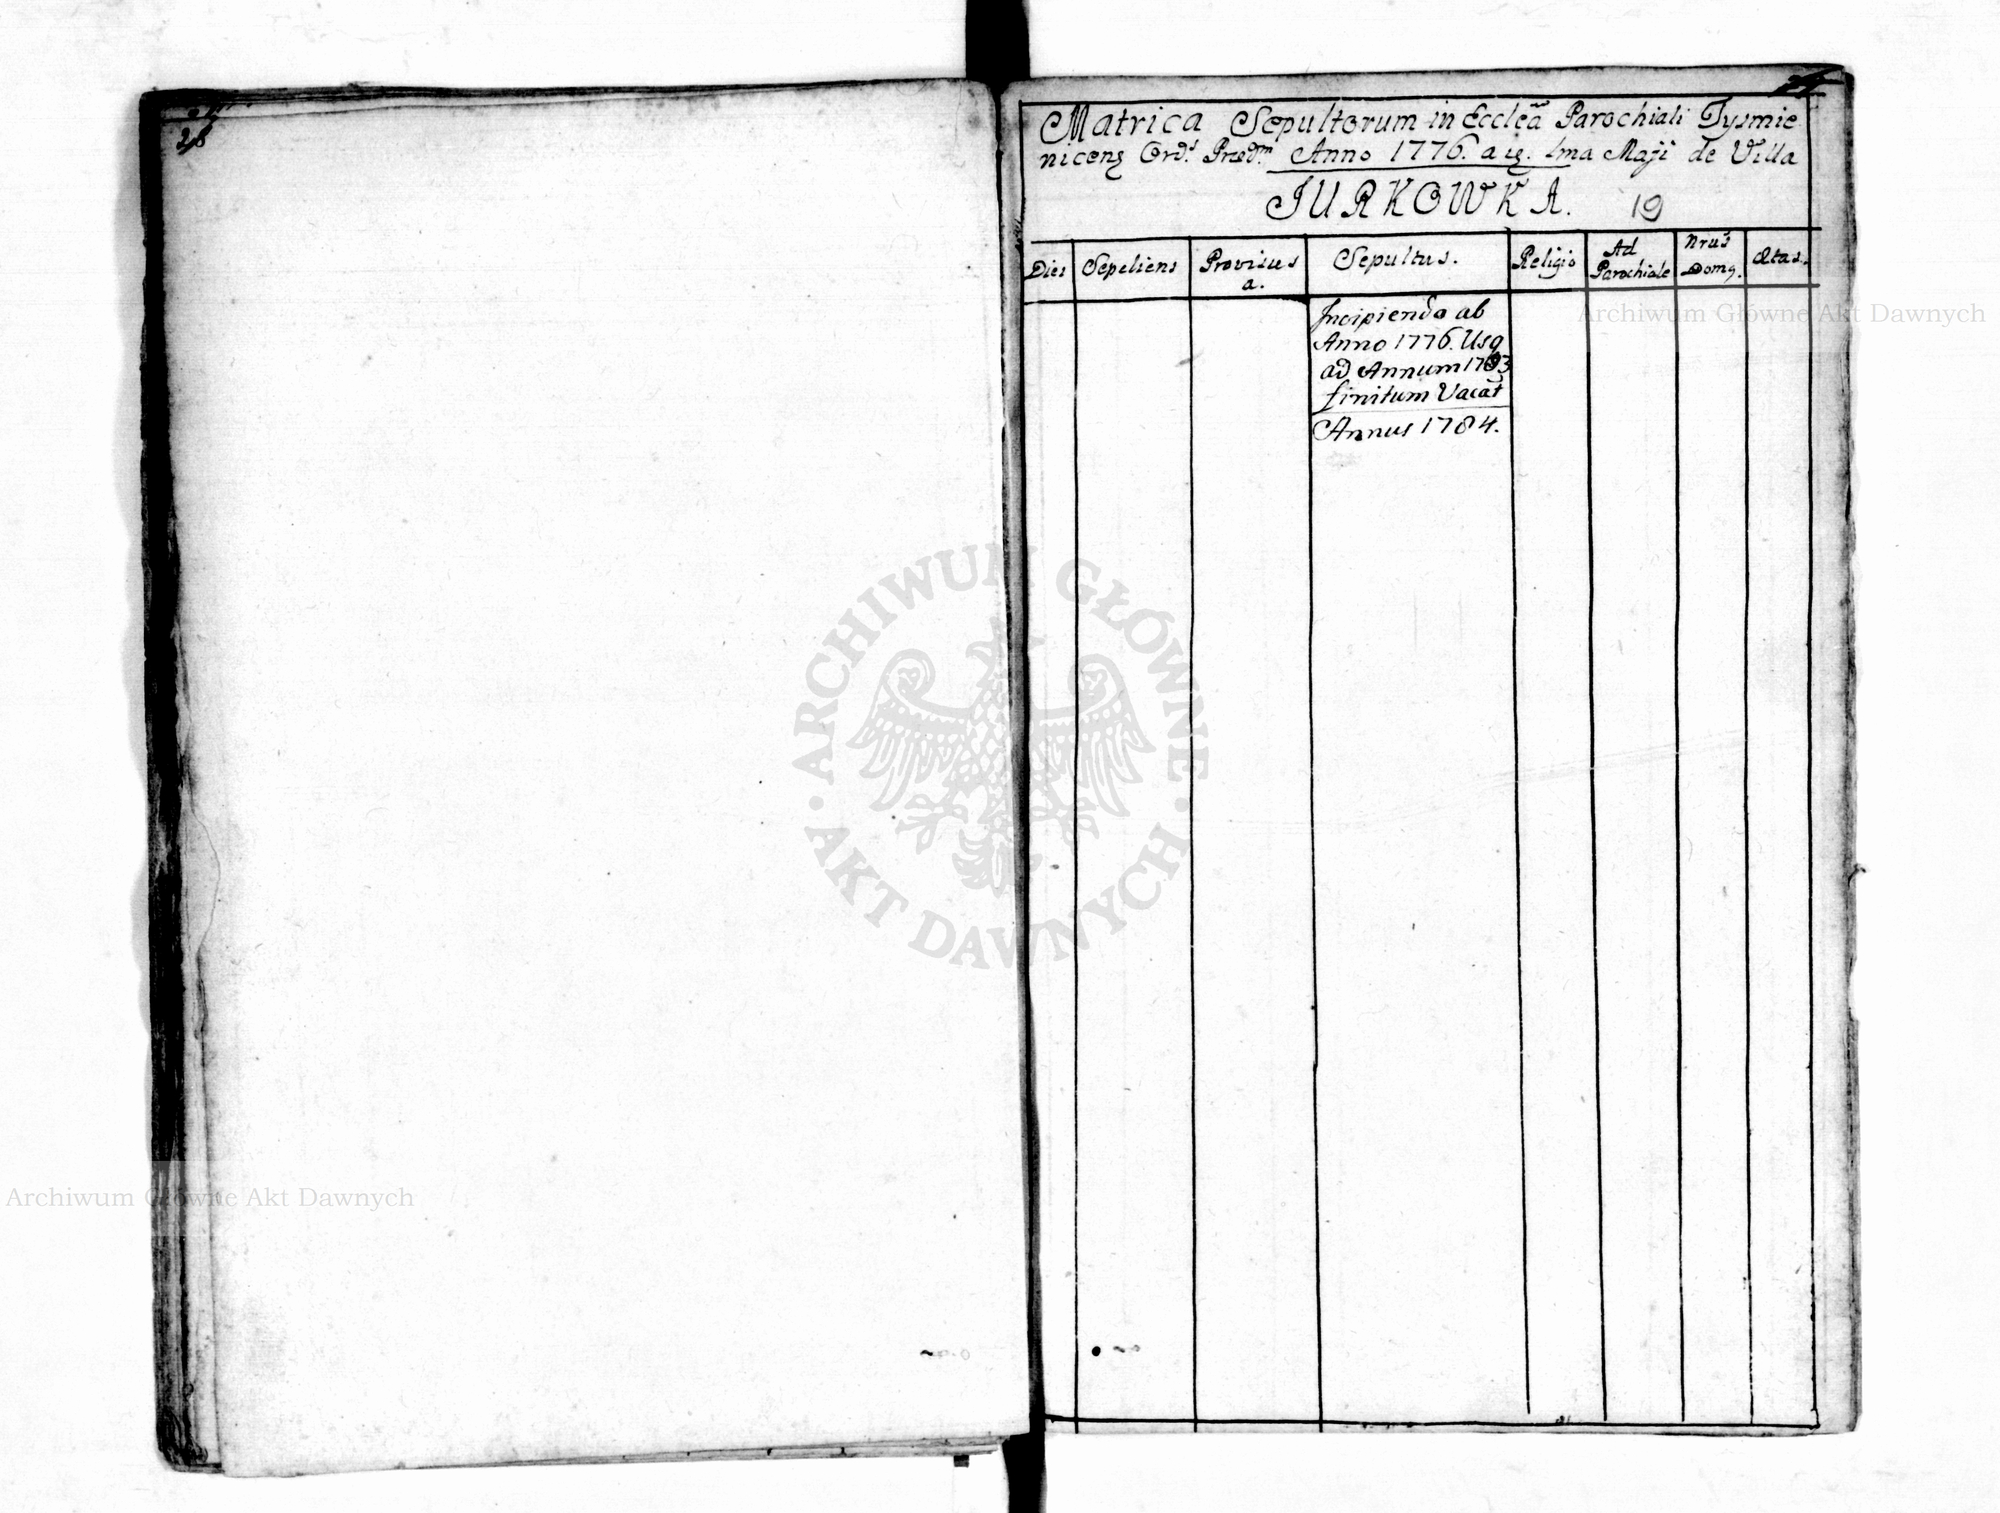 28
Matrica Sepultorum in Ecclēa Parochiali Tysmie
nicens Ords Prædm Anno 1776. a 1ma Maji de Villa
JURKOWKA. 19
Dies Sepeliens Provisus a. Sepultus. Religio Ad Parochiale Nrus Domq. Ætas.
Incipiendo ab
Anno 1776. Usq
ad Annum 1783
finitum Vacat
Annus 1784.
Archiwum Główne Akt Dawnych
ARCHIWUM GŁÓWNE
AKT DAWNYCH
Archiwum Główne Akt Dawnych